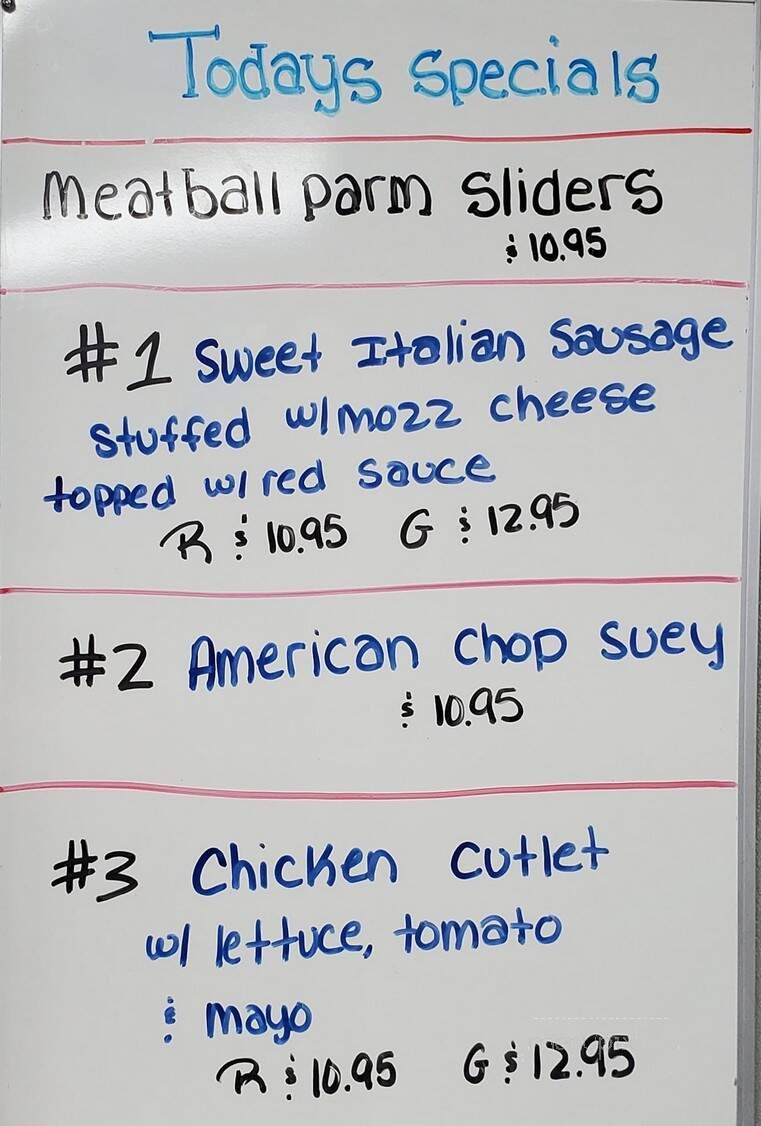 Todays Specials
Meatball parm Sliders
$ 10.95
#1 Sweet Italian Sausage
stuffed w/mozz cheese
topped w/ red sauce
R $ 10.95 G $ 12.95
#2 American Chop Suey
$ 10.95
#3 Chicken cutlet
w/ lettuce, tomato
& mayo
R $ 10.95 G $ 12.95